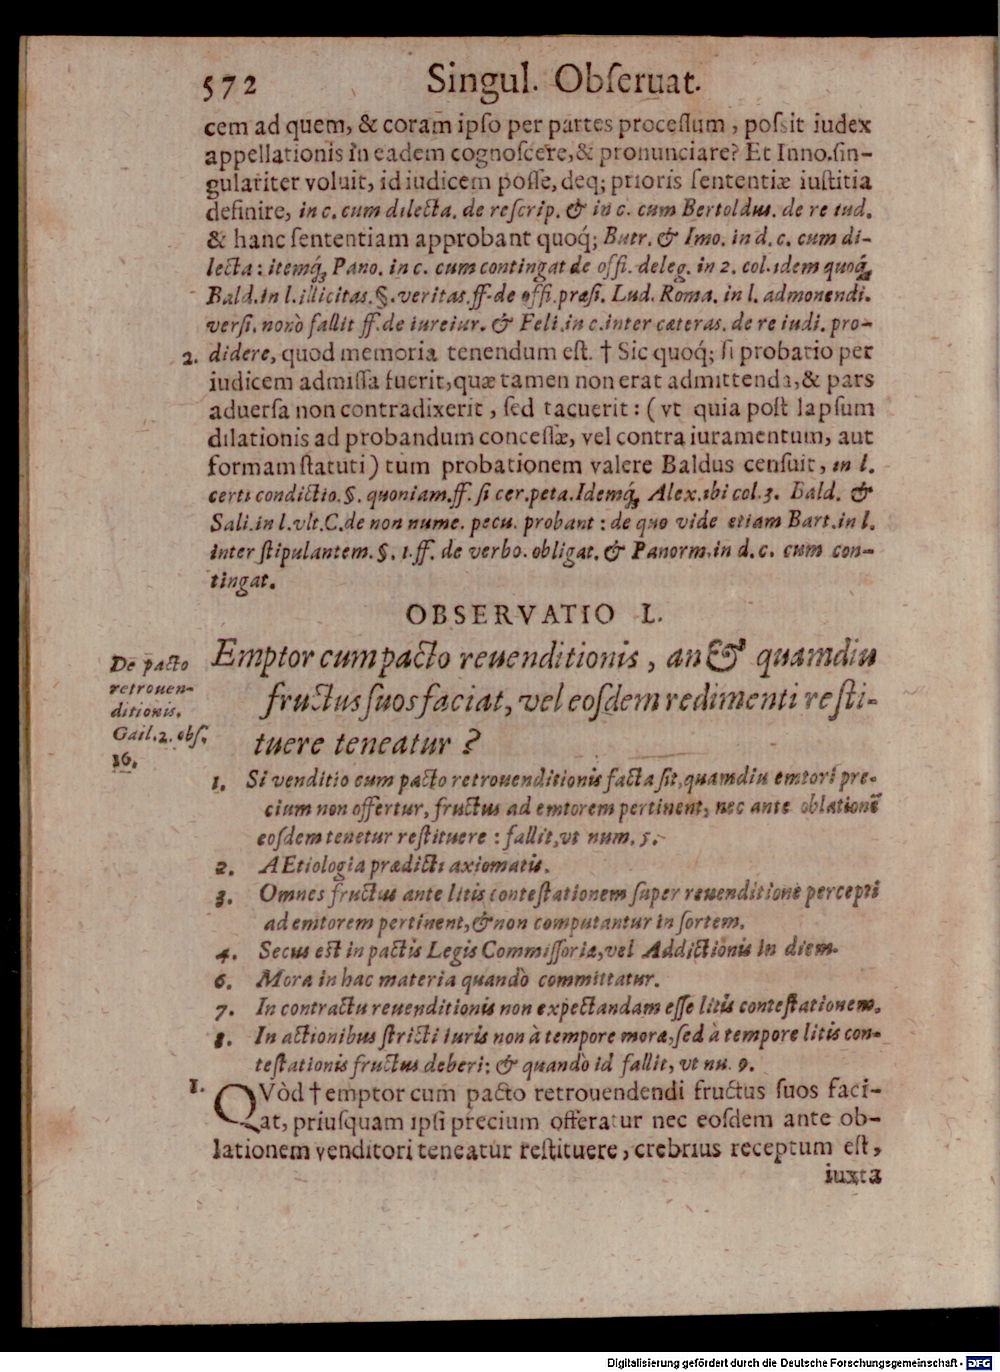 572 Singul. Obſeruat.
cem ad quem, & coram ipſo per partes proceſſum, poſsit iudex
appellationis in eadem cognoſcere, & pronunciare? Et Inno. ſin-
gulariter voluit, id iudicem poſſe, deq; prioris ſententiæ iuſtitia
definire, in c. cum dilecta. de reſcrip. & in c. cum Bertoldus. de re iud.
& hanc ſententiam approbant quoq́; Butr. & Imo. in d. c. cum di-
lecta: itemq́; Pano. in c. cum contingat de offi. deleg. in 2. col. idem quoq́;
Bald. in l. illicitas. §. veritas. ff. de offi. præſi. Lud. Roma. in l. admonendi.
verſi. nonò fallit ff. de iureiur. & Feli. in c. inter cæteras. de re iudi. pro-
2. didere, quod memoria tenendum eſt. † Sic quoq́; ſi probatio per
iudicem admiſſa fuerit, quæ tamen non erat admittenda, & pars
aduerſa non contradixerit, ſed tacuerit: (vt quia poſt lapſum
dilationis ad probandum conceſſæ, vel contra iuramentum, aut
formam ſtatuti) tum probationem valere Baldus cenſuit, in l.
certi condictio. §. quoniam. ff. ſi cer. peta. Idemq́; Alex. ibi col. 3. Bald. &
Sali. in l. vlt. C. de non nume. pecu. probant: de quo vide etiam Bart. in l.
inter ſtipulantem. §. 1. ff. de verbo. obligat. & Panorm. in d. c. cum con-
tingat.
OBSERVATIO L.
De pacto
retrouen-
ditionis.
Gail. 2. obſ.
16.
Emptor cum pacto reuenditionis, an & quamdiu
fructus ſuos faciat, vel eoſdem redimenti reſti-
tuere teneatur?
1. Si venditio cum pacto retrouenditionis facta ſit, quamdiu emtori pre-
cium non offertur, fructus ad emtorem pertinent, nec ante oblationē
eoſdem tenetur reſtituere: fallit, vt num. 5.
2. AEtiologia prædicti axiomatis.
3. Omnes fructus ante litis conteſtationem ſuper reuenditione percepti
ad emtorem pertinent, & non computantur in ſortem.
4. Secus eſt in pactis Legis Commiſſoriæ, vel Addictionis in diem.
6. Mora in hac materia quandò committatur.
7. In contractu reuenditionis non expectandam eſſe litis conteſtationem.
8. In actionibus ſtricti iuris non à tempore moræ, ſed à tempore litis con-
teſtationis fructus deberi: & quandò id fallit, vt nu. 9.
1. QVòd † emptor cum pacto retrouendendi fructus ſuos faci-
at, priuſquam ipſi precium offeratur nec eoſdem ante ob-
lationem venditori teneatur reſtituere, crebrius receptum eſt,
iuxta
Digitalisierung gefördert durch die Deutsche Forschungsgemeinschaft - DFG